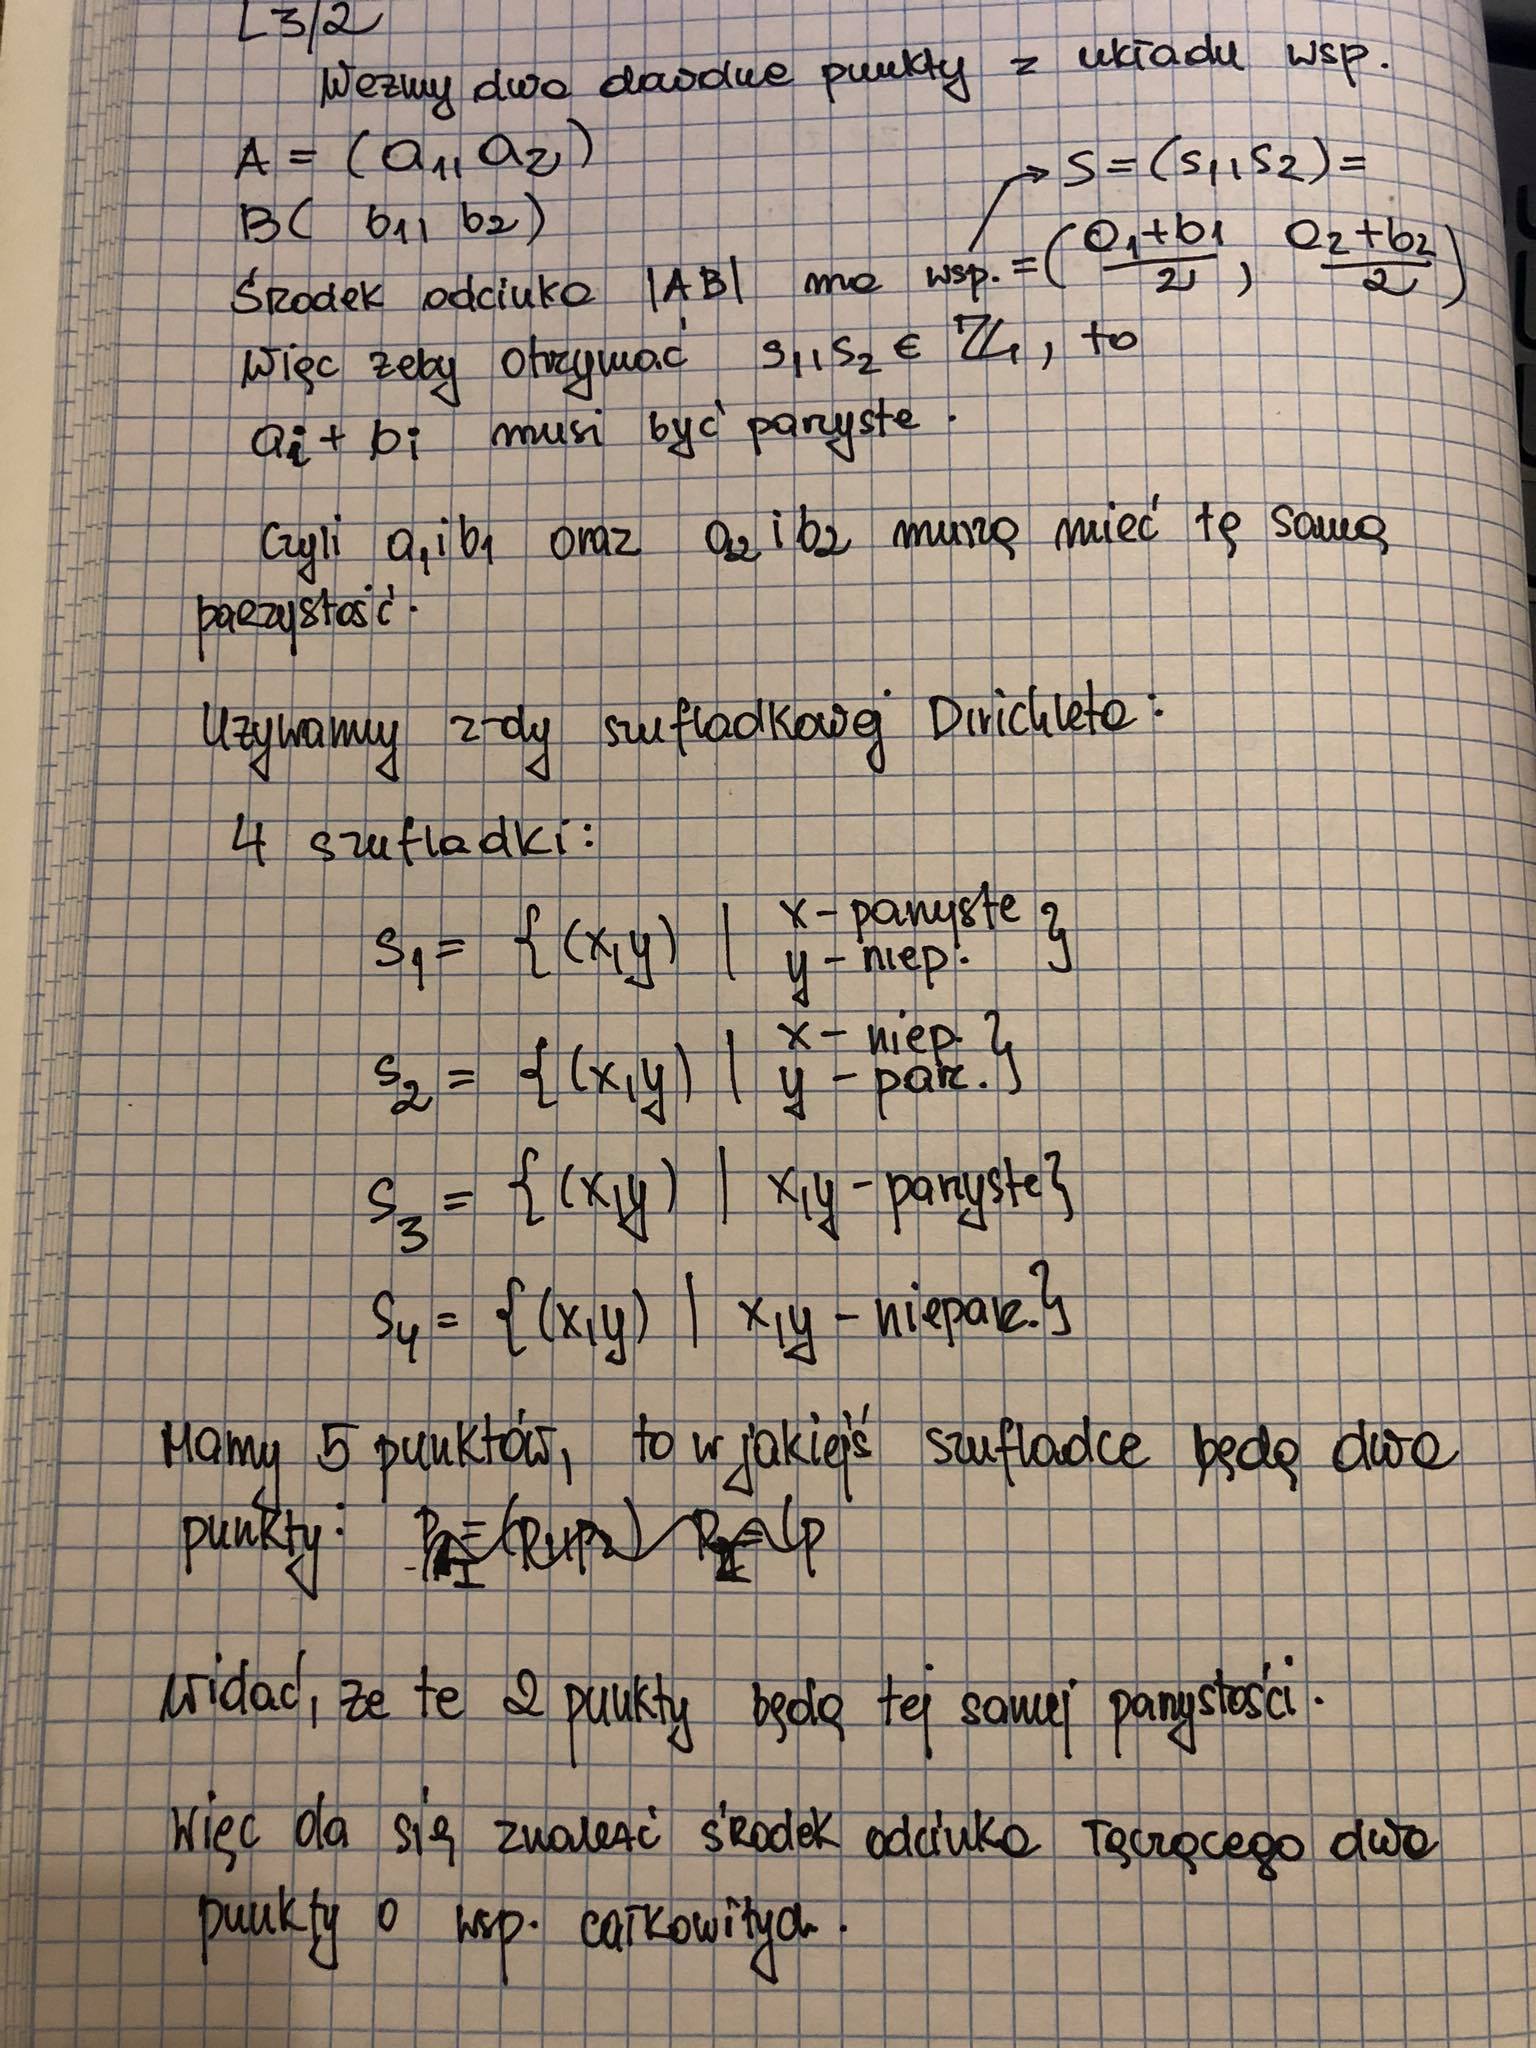 L3/2
Weźmy dwa dowolne punkty z układu wsp.
A = (a1, a2)
B( b1, b2)
→ S = (s1, s2) =
Środek odcinka |AB| ma wsp. = ( \frac{a1+b1}{2}, \frac{a2+b2}{2} )
Więc żeby otrzymać s1, s2 ∈ ℤ, to
ai + bi musi być parzyste.
Czyli a1 i b1 oraz a2 i b2 muszą mieć tę samą
parzystość.
Używamy z-dy szufladkowej Dirichleta:
4 szufladki:
S1 = {(x,y) | x - parzyste y - niep. }
S2 = {(x,y) | x - niep. y - parz. }
S3 = {(x,y) | x,y - parzyste}
S4 = {(x,y) | x,y - nieparz.}
Mamy 5 punktów, to w jakiejś szufladce będą dwa
punkty:
Widać, że te 2 punkty będą tej samej parzystości.
Więc da się znaleźć środek odcinka łączącego dwa
punkty o wsp. całkowitych.